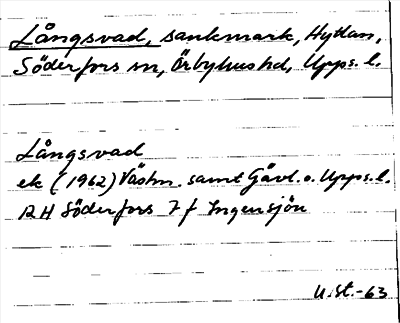 Långsvad, sankmark, Hyttan,
Söderfors sn, Örbyhus hd, Upps. l.
Långsvad
ek (1962) Västm. samt Gävl. o. Upps. l.
RH Söderfors 7 f Ingensjön
U.St.-63